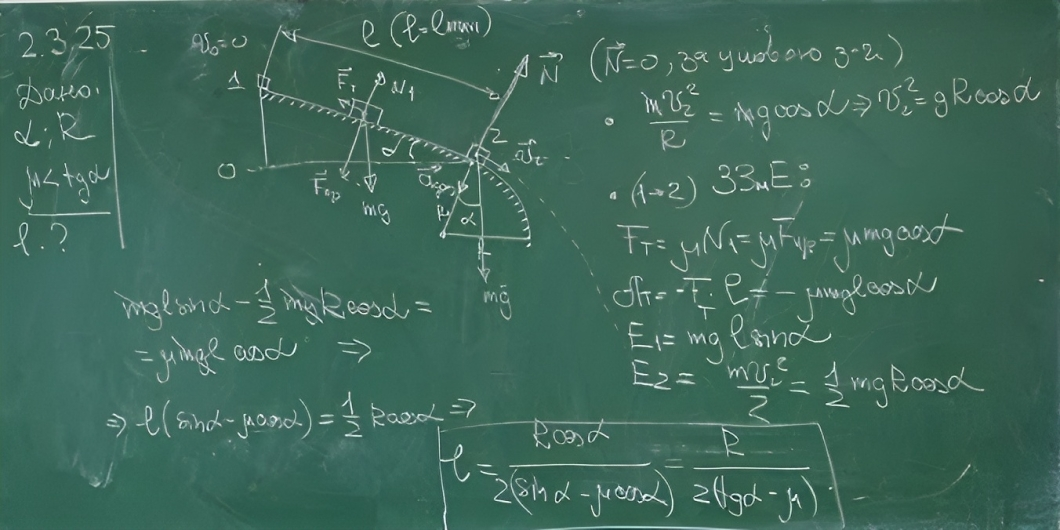 2.3.25
Дано:
α; R
μ < tgα
l - ?
v₀=0
l (l=lmin)
1
0
F⃗т
N₁
F⃗пр
mg
α
N⃗
2
v⃗₂
R
α
mg⃗
(N⃗=0, за умовою з-чі)
• mv₂²/R = mgcosα ⇒ v₂² = gRcosα
• (1→2) ЗЗмЕ:
Fт = μN₁ = μFпр = μmgcosα
Aт = -Fт·l = -μmglcosα
E₁ = mglsinα
E₂ = mv₂²/2 = 1/2 mgRcosα
mglsinα - 1/2 mgRcosα =
= μmgl cosα ⇒
⇒ l(sinα - μcosα) = 1/2 Rcosα ⇒
l = Rcosα/2(sinα - μcosα) = R/2(tgα - μ)